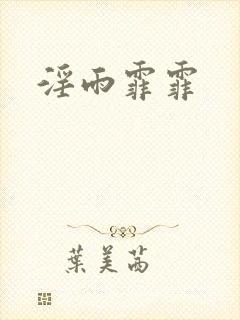 淫雨霏霏
葉美茜